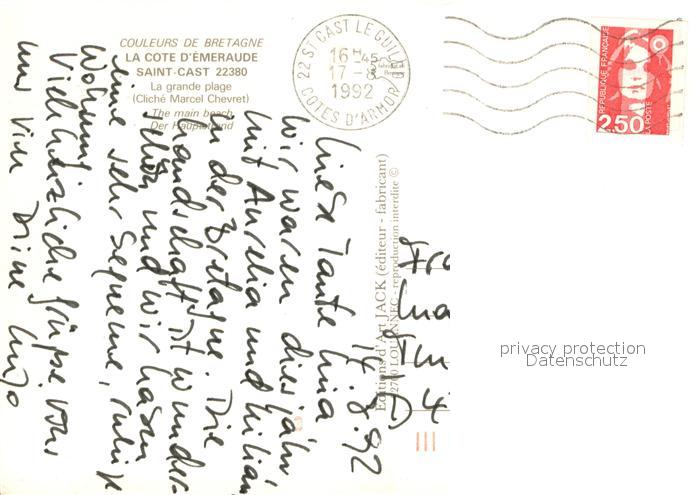 COULEURS DE BRETAGNE
LA COTE D'ÉMERAUDE
SAINT-CAST 22380
La grande plage
(Cliché Marcel Chevret)
The main beach
Der Hauptstrand
22 ST CAST LE GUILDO
16H45
17-8
1992
COTES D'ARMOR
REPUBLIQUE FRANÇAISE
2,50
LA POSTE
Editions d'Art JACK (éditeur - fabricant)
22700 LOUANNEC - reproduction interdite ©
14.8.92
Liebe Tante Lina
wir waren dies Jahr
mit Aurelia und Kilian
in der Bretagne. Die
Landschaft ist wunder-
schön und wir haben
eine sehr bequeme, ruhige
Wohnung
Viele herzliche Grüsse von
uns vier Deine
privacy protection
Datenschutz